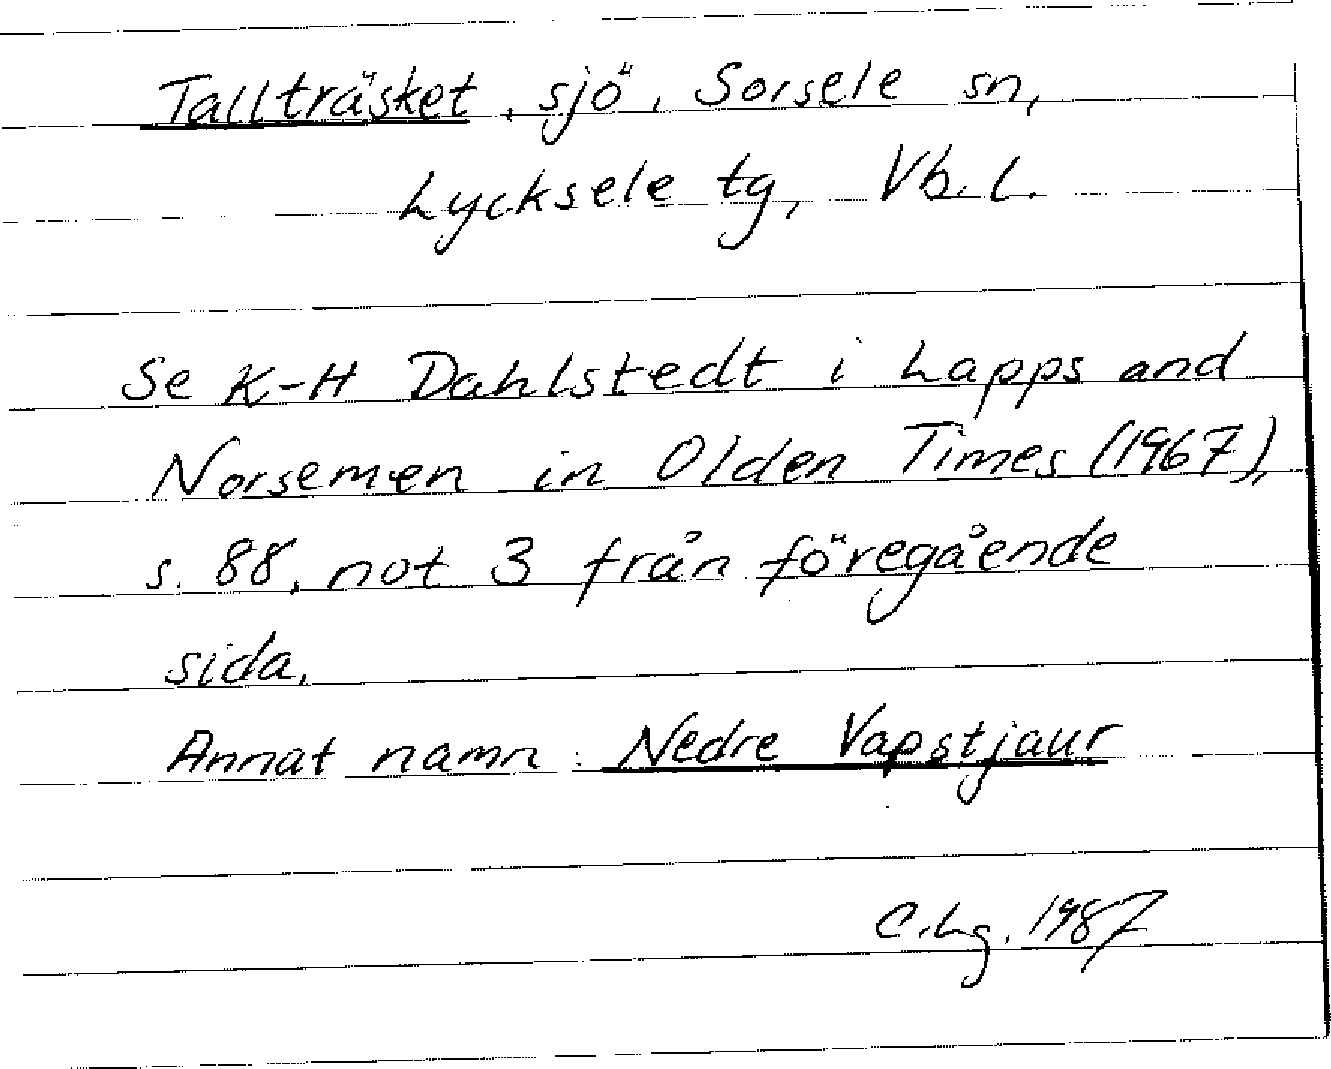 Tallträsket, sjö, Sorsele sn,
Lycksele tg, Vb. l.
Se K-H Dahlstedt i Lapps and
Norsemen in Olden Times (1967),
s. 88, not 3 från föregående
sida.
Annat namn: Nedre Vapstjaur
C.Lg. 1987